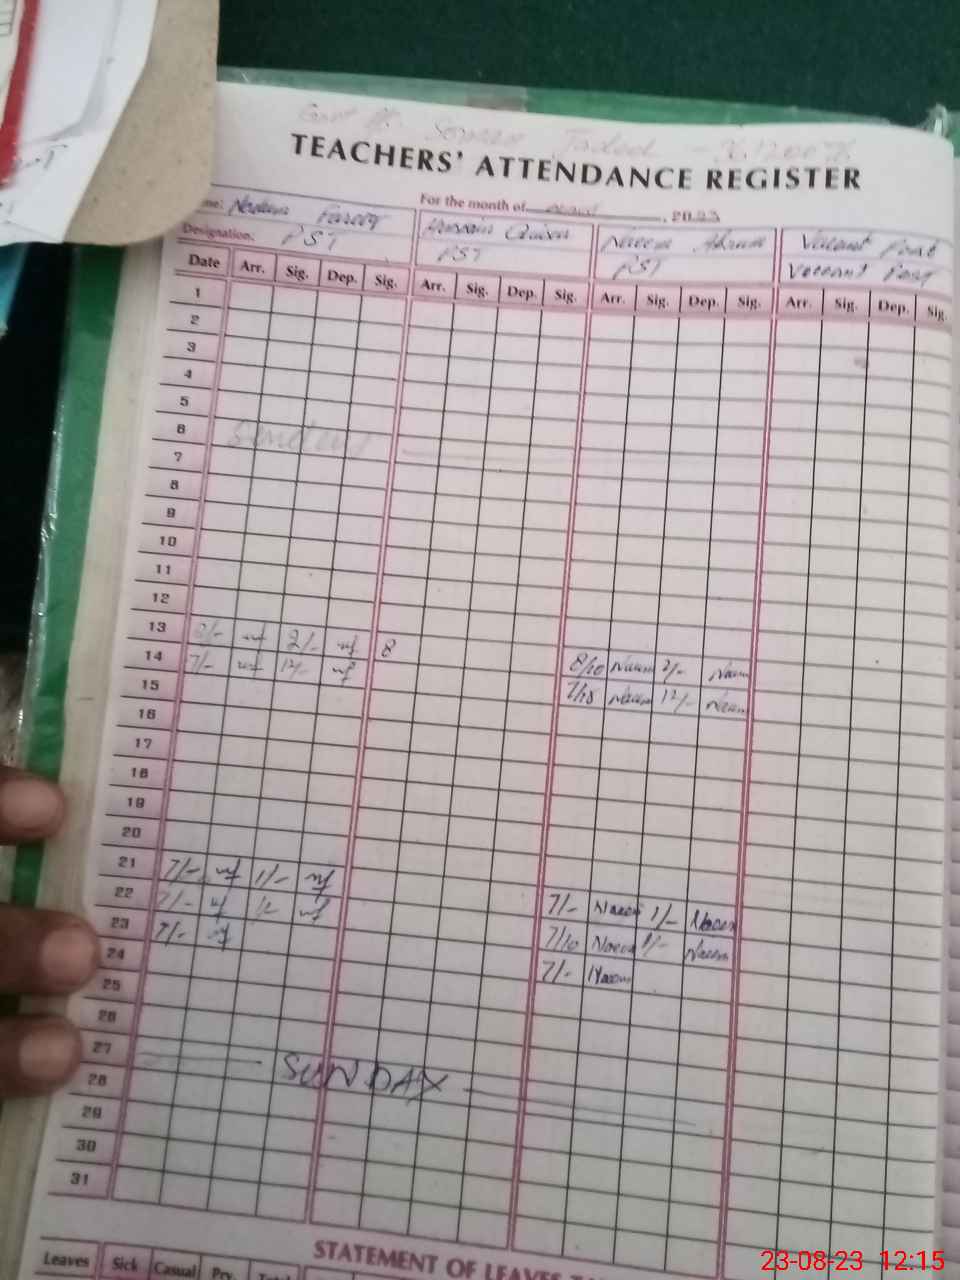 TEACHERS' ATTENDANCE REGISTER
For the month of , 2023
Name: Nadeem Farooq Hussain Qaiser Naeem Akram Vacant Post
Designation: PST PST PST Vacant Post
Date Arr. Sig. Dep. Sig. Arr. Sig. Dep. Sig. Arr. Sig. Dep. Sig. Arr. Sig. Dep. Sig.
1
2
3
4
5
6 Sunday
7
8
9
10
11
12
13
14 8/- nf 2/- nf 8 8/10 Naeem 2/- Naeem
15 7/- nf 12/- nf 7/15 Naeem 12/- Naeem
16
17
18
19
20
21 7/- nf 1/- nf 7/- Naeem 1/- Naeem
22 7/- nf 12 nf 7/10 Naeem Naeem
23 7/- nf 7/- Naeem
24
25
26
27 SUNDAY
28
29
30
31
STATEMENT OF LEAVES
Leaves Sick Casual Prv. Total
23-08-23 12:15